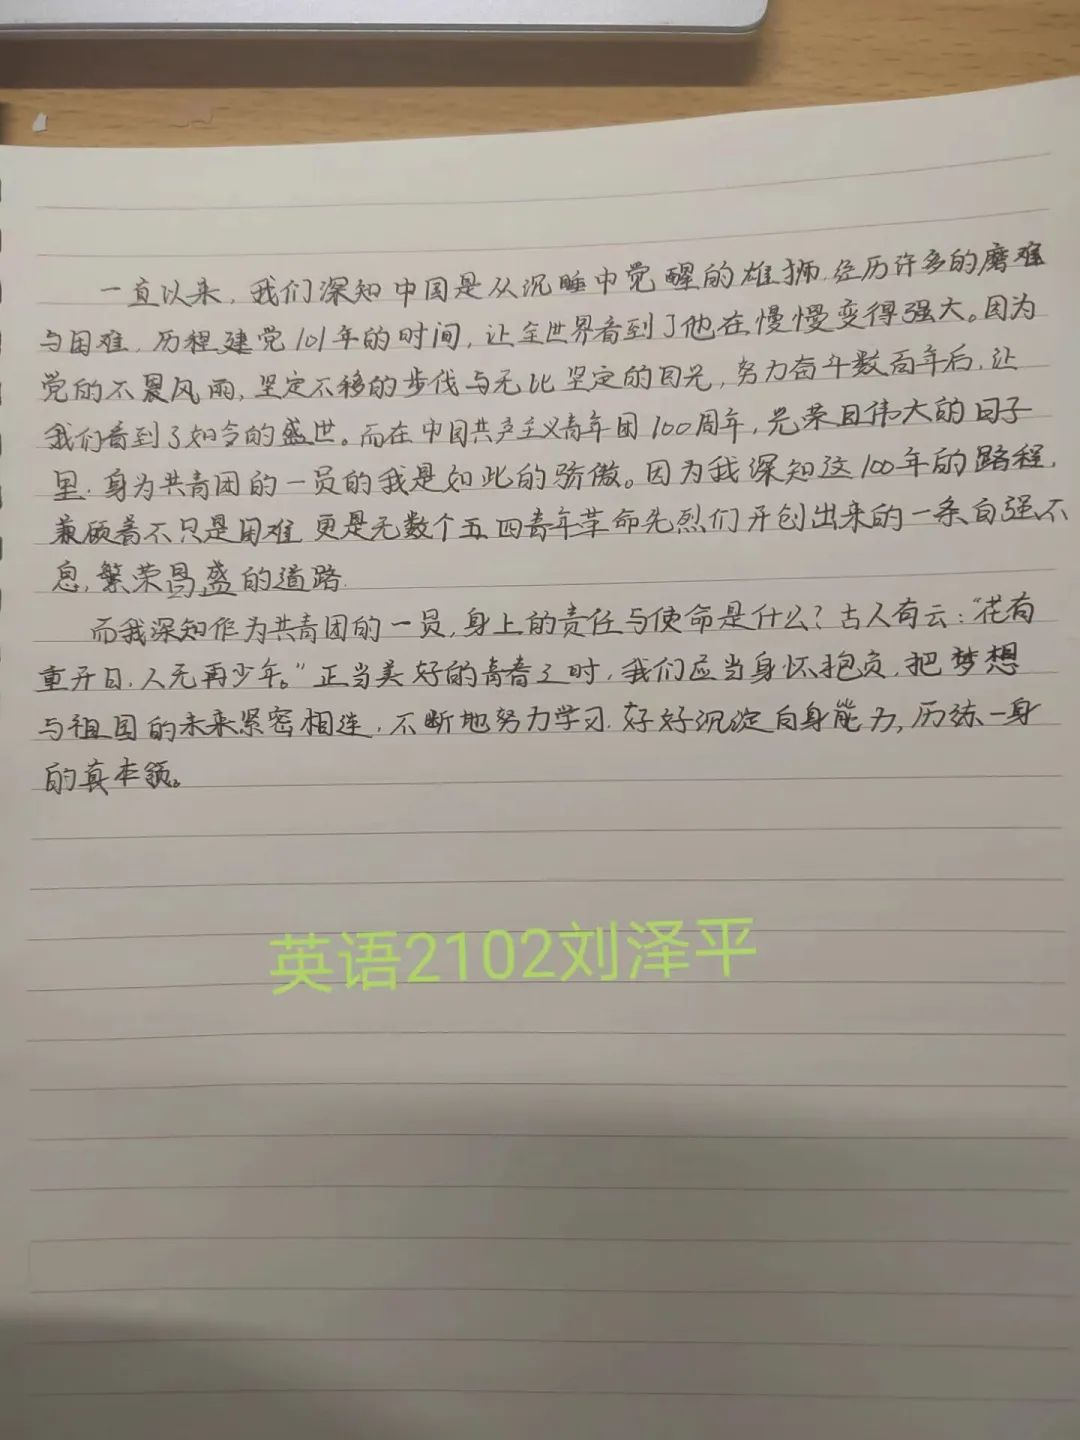 一直以来，我们深知中国是从沉睡中觉醒的雄狮，经历许多的磨难
与困难，历程建党101年的时间，让全世界看到了他在慢慢变得强大。因为
党的不畏风雨，坚定不移的步伐与无比坚定的目光，努力奋斗数百年后，让
我们看到了如今的盛世。而在中国共产主义青年团100周年，光荣且伟大的日子
里，身为共青团的一员的我是如此的骄傲。因为我深知这100年的路程，
兼顾着不只是困难，更是无数个五四青年革命先烈们开创出来的一条自强不
息，繁荣昌盛的道路.
而我深知作为共青团的一员，身上的责任与使命是什么？古人有云：“花有
重开日，人无再少年。”正当美好的青春之时，我们应当身怀抱负，把梦想
与祖国的未来紧密相连，不断地努力学习，好好沉淀自身能力，历练一身
的真本领。
英语2102刘泽平